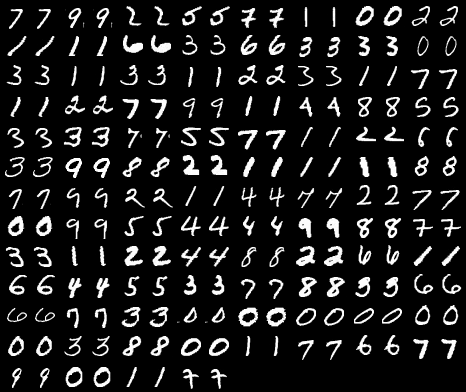 7 7 9 9 2 2 5 5 7 7 1 1 0 0 2 2
1 1 1 1 6 6 3 3 6 6 3 3 3 3 0 0
3 3 1 1 3 3 1 1 2 2 3 3 1 1 7 7
1 1 2 2 7 7 9 9 1 1 4 4 8 8 5 5
3 3 3 3 7 7 5 5 7 7 1 1 2 2 6 6
3 3 9 9 8 8 2 2 1 1 1 1 1 1 8 8
7 7 9 9 2 2 1 1 4 4 7 7 2 2 7 7
0 0 9 9 5 5 4 4 4 4 9 9 8 8 7 7
3 3 1 1 2 2 4 4 8 8 2 2 6 6 1 1
6 6 4 4 5 5 3 3 7 7 8 8 3 3 6 6
6 6 7 7 3 3 0 0 0 0 0 0 0 0 0 0
0 0 3 3 8 8 0 0 1 1 7 7 6 6 7 7
9 9 0 0 1 1 7 7